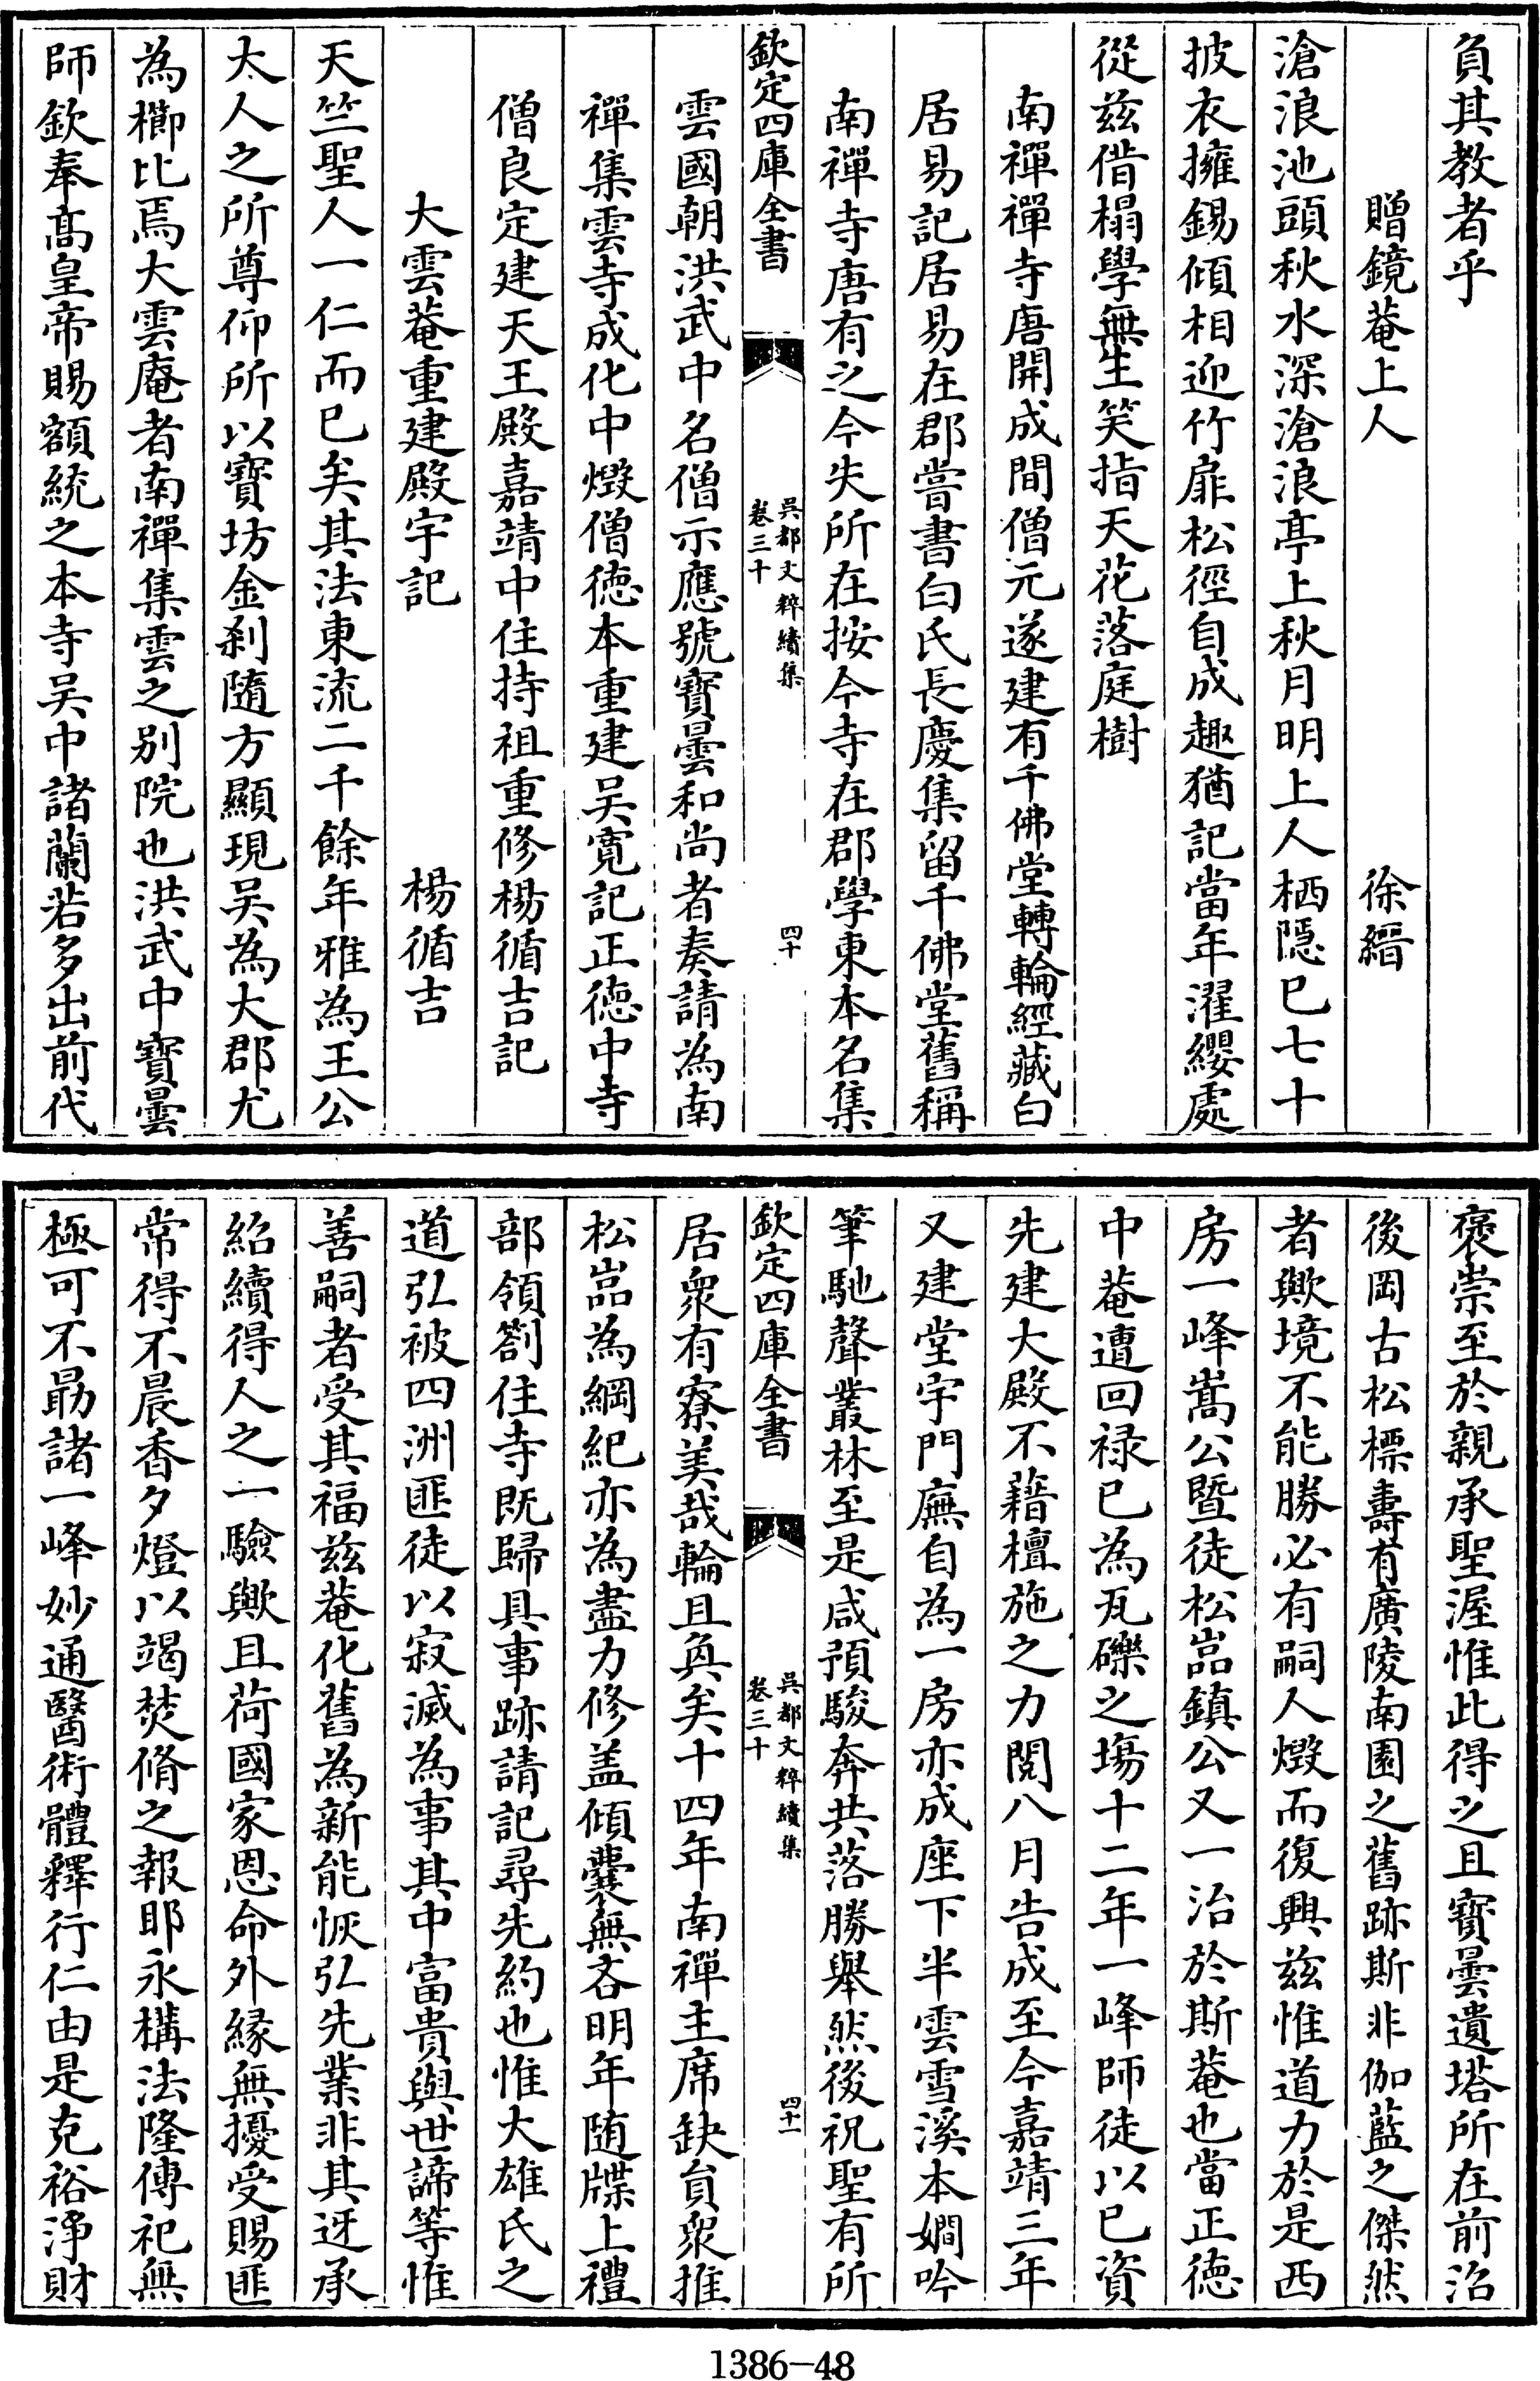 負其教者乎
贈鏡菴上人　徐縉
滄浪池頭秋水深滄浪亭上秋月明上人栖隠已七十
披衣擁錫傾相迎竹扉松徑自成趣猶記當年濯纓處
從兹借榻學無生笑指天花落庭樹
南禪禪寺唐開成間僧元遂建有千佛堂轉輪經藏白
居易記居易在郡嘗書白氏長慶集留千佛堂舊稱
南禪寺唐有之今失所在按今寺在郡學東本名集
欽定四庫全書
吳都文粹續集
卷三十
四十
雲國朝洪武中名僧示應號寳曇和尚者奏請為南
禪集雲寺成化中燬僧徳本重建吳寛記正徳中寺
僧良定建天王殿嘉靖中住持祖重修楊循吉記
大雲菴重建殿宇記　楊循吉
天竺聖人一仁而已矣其法東流二千餘年雅為王公
大人之所尊仰所以寳坊金刹隨方顯現吳為大郡尤
為櫛比焉大雲庵者南禪集雲之别院也洪武中寳曇
師欽奉髙皇帝賜額統之本寺吳中諸蘭若多出前代
褒崇至於親承聖渥惟此得之且寳曇遺塔所在前沿
後岡古松標壽有廣陵南園之舊跡斯非伽藍之傑然
者歟境不能勝必有嗣人燬而復興兹惟道力於是西
房一峰嵩公暨徒松嵓鎮公又一治於斯菴也當正徳
中菴遭回禄已為瓦礫之塲十二年一峰師徒以已資
先建大殿不藉檀施之力閲八月告成至今嘉靖三年
又建堂宇門廡自為一房亦成座下半雲雪溪本嫺吟
筆馳聲叢林至是咸預駿奔共落勝舉然後祝聖有所
欽定四庫全書
吳都文粹續集
卷三十
四十一
居衆有寮美哉輪且奐矣十四年南禪主席缺貟衆推
松嵓為綱紀亦為盡力修盖傾囊無吝明年随牒上禮
部領劄住寺既歸具事跡請記尋先約也惟大雄氏之
道弘被四洲匪徒以寂滅為事其中富貴與世諦等惟
善嗣者受其福兹菴化舊為新能恢弘先業非其迓承
紹續得人之一驗歟且荷國家恩命外緣無擾受賜匪
常得不晨香夕燈以竭焚脩之報耶永構法隆傳祀無
極可不勗諸一峰妙通醫術體釋行仁由是克裕浄財
1386-48